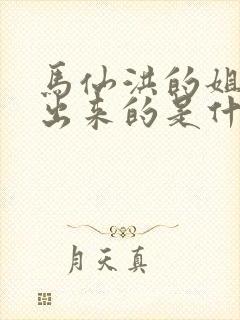 馬仙洪的姐
出来的是什
月天真